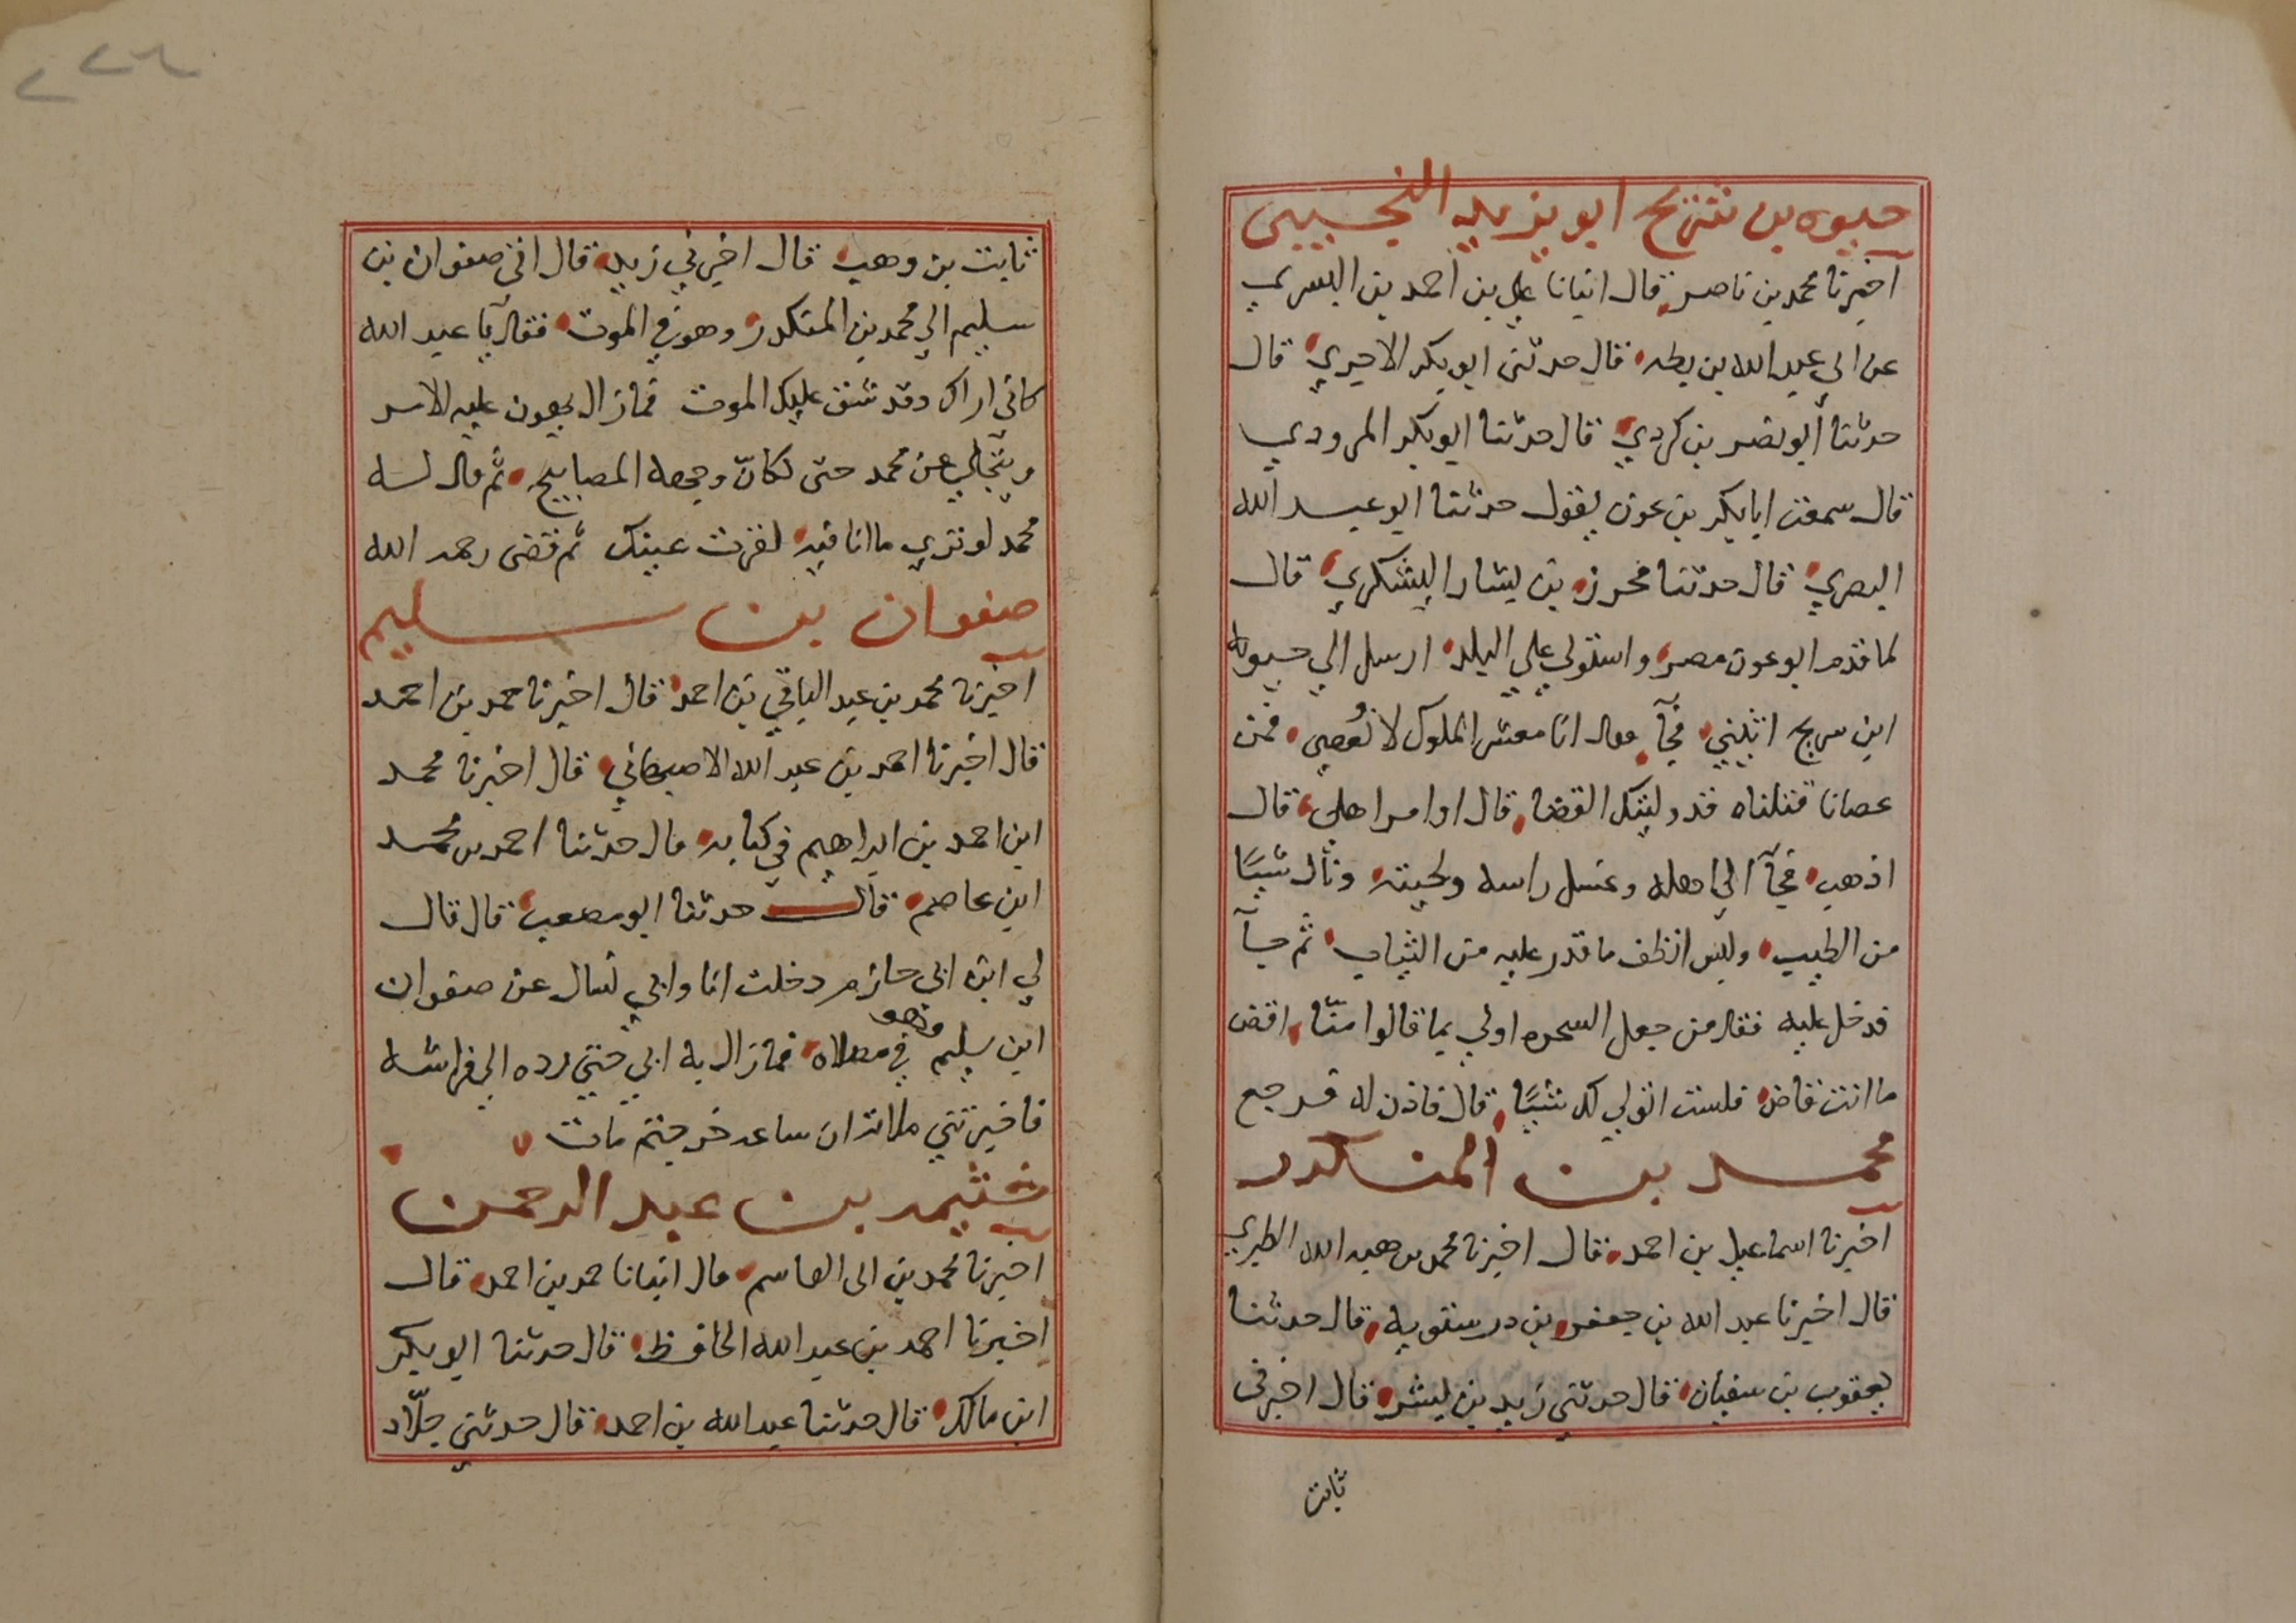 حيوه بن شريح ابو يزيد التجيبي
اخبرنا محمد بن ناصر قال انبانا علي بن احمد بن البسري
عن ابي عبد الله بن بطه قال حدثني ابو بكر الاجري قال
حدثنا ابو نصر بن كردي قال حدثنا ابو بكر المرودي
قال سمعت ابا بكر بن عون يقول حدثنا ابو عبد الله
البصري قال حدثنا محرز بن يشار اليشكري قال
لما قدم ابو عون مصر واستولي علي البلد ارسل الي حيوة
ابن سريح ائتيني فجآ فقال انا معشر الملوك لا نُعصي فمن
عصانا قتلناه قد وليتك القضا قال اوامر اهلي قال
اذهب فجآ الي اهله وغسل راسه ولحيته ونال شيًا
من الطيب ولبس انظف ما قدر عليه من الثياب ثم جآ
فدخل عليه فقال من جعل السحره اولي بما قالوا منّا اقض
ما انت قاض فلست اتولي لك شيًا قال فاذن له فرجع
محمد بن المنكدر
اخبرنا اسماعيل بن احمد قال اخبرنا محمد بن هبه الله الطبري
قال اخبرنا عبد الله بن جعفر بن درستويه قال حدثنا
يعقوب بن سفيان قال حدثني زيد بن بشر قال اخبرني
ثابت
٢٢٦
ثابت بن وهب قال اخبرني زيد قال اتى صفوان بن
سليم الي محمد بن المنكدر وهو في الموت فقال يا عبد الله
كاني اراك وقد شق عليك الموت فما زال يهون عليه الامر
ويتجلي عن محمد حتى لكانّ وجهه المصابيح ثم قال له
محمد لو تري ما انا فيه لقرت عينك ثم قضى رحمه الله
صفوان بن سليم
اخبرنا محمد بن عبد الباقي بن احمد قال اخبرنا حمد بن احمد
قال اخبرنا احمد بن عبد الله الاصبهاني قال اخبرنا محمد
ابن احمد بن ابراهيم في كتابه قال حدثنا احمد بن محمد
ابن عاصم قال حدثنا ابو مصعب قال قال
لي ابن ابي حازم دخلت انا وابي نسال عن صفوان
ابن سليم وهو في مصلاه فما زال به ابي حتي رده الي فراشه
فاخبرتني ان ساعه خرجتم مات
خثيمه بن عبد الرحمن
اخبرنا محمد بن ابي القاسم قال انبانا حمد بن احمد قال
اخبرنا احمد بن عبد الله الحافظ قال حدثنا ابو بكر
ابن مالك قال حدثنا عبد الله بن احمد قال حدثني جلّاد